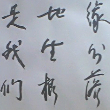 缘分落
地生根
是我们